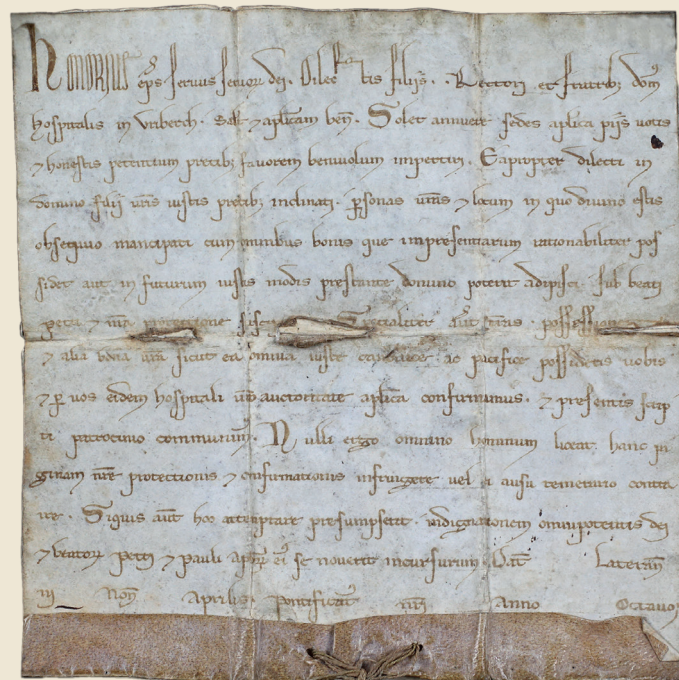 honorius eps seruus seruor dei. Dilectis filiis. Rectori et fratribz dom'
hospitalis in Vrberch. Salt 7 aplicam ben. Solet annuere sedes aplica piis uotis
7 honestis petentium precibz fauorem beniuolum impertiri. Eapropter dilecti in
domino filii uris iustis precibz inclinati. psonas uras 7 locum in quo diuino estis
obsequio mancipati cum omnibus bonis que impresentiarum rationabiliter pos
sidet aut in futurum iustis modis prestante domino poterit adipisci. sub beati
petri 7 nra protectione Specialiter aut possessiones
7 alia bona ura sicut ea omnia iuste ac pacifice possidetis uobis
7 p uos eidem hospitali auctoritate aplica confirmamus. 7 presentis scrip
ti patrocinio communimus. Nulli ergo omnino hominum liceat hanc pa
ginam nre protectionis 7 confirmationis infringere uel ei ausu temerario contra
ire. Siquis aut hoc attemptare presumpserit. indignationem omnipotentis dei
7 beator petri 7 pauli aplor ei' se nouerit incursurum. Dat Lateran
iij Non Aprilis. Pontificat' nri Anno Octauo